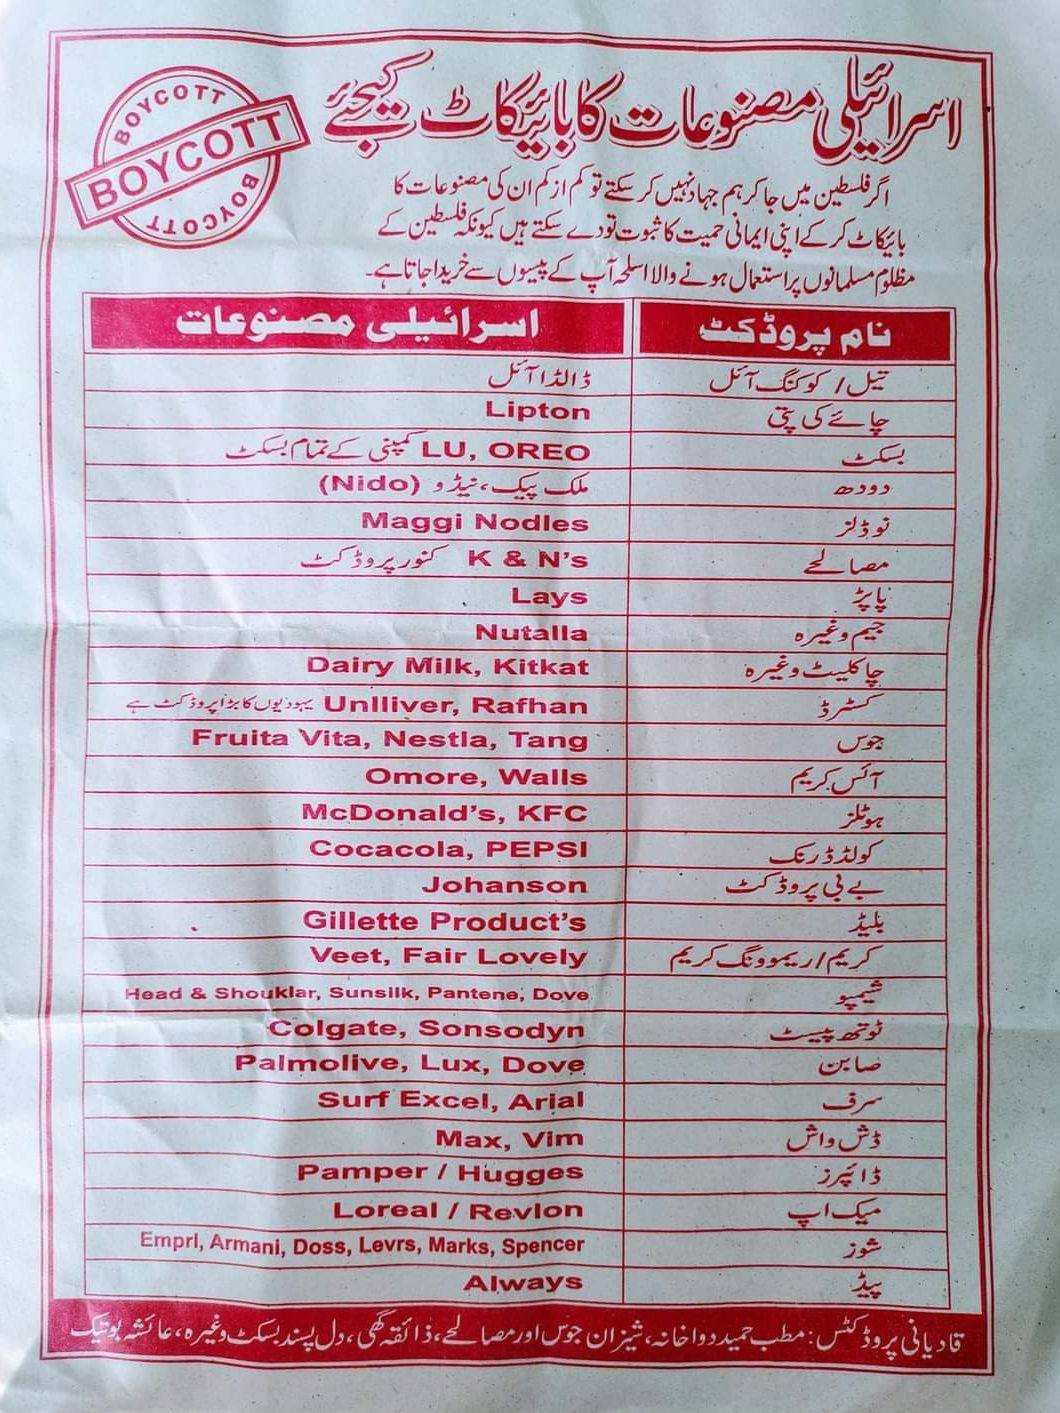 BOYCOTT
BOYCOTT
BOYCOTT
اسرائیلی مصنوعات کا بائیکاٹ کیجئے
اگر فلسطین میں جا کر ہم جہاد نہیں کر سکتے تو کم از کم ان کی مصنوعات کا
بائیکاٹ کر کے اپنی ایمانی حمیت کا ثبوت تو دے سکتے ہیں کیونکہ فلسطین کے
مظلوم مسلمانوں پر استعمال ہونے والا اسلحہ آپ کے پیسوں سے خریدا جاتا ہے۔
نام پروڈکٹ اسرائیلی مصنوعات
تیل / کوکنگ آئل ڈالڈا آئل
چائے کی پتی Lipton
بسکٹ LU, OREO کمپنی کے تمام بسکٹ
دودھ ملک پیک، نیڈو (Nido)
نوڈلز Maggi Nodles
مصالحے K & N's کنور پروڈکٹ
پاپڑ Lays
جیم وغیرہ Nutalla
چاکلیٹ وغیرہ Dairy Milk, Kitkat
کسٹرڈ Unlliver, Rafhan یہودیوں کا بڑا پروڈکٹ ہے
جوس Fruita Vita, Nestla, Tang
آئس کریم Omore, Walls
ہوٹلز McDonald's, KFC
کولڈ ڈرنک Cocacola, PEPSI
بے بی پروڈکٹ Johanson
بلیڈ Gillette Product's
کریم / ریموونگ کریم Veet, Fair Lovely
شیمپو Head & Shouklar, Sunsilk, Pantene, Dove
ٹوتھ پیسٹ Colgate, Sonsodyn
صابن Palmolive, Lux, Dove
سرف Surf Excel, Arial
ڈش واش Max, Vim
ڈائپرز Pamper / Hugges
میک اپ Loreal / Revlon
شوز Emprl, Armani, Doss, Levrs, Marks, Spencer
پیڈ Always
قادیانی پروڈکٹس: مطب حمید دواخانہ، شیزان جوس اور مصالحے، ذائقہ گھی، دل پسند بسکٹ وغیرہ، عائشہ بوتیک